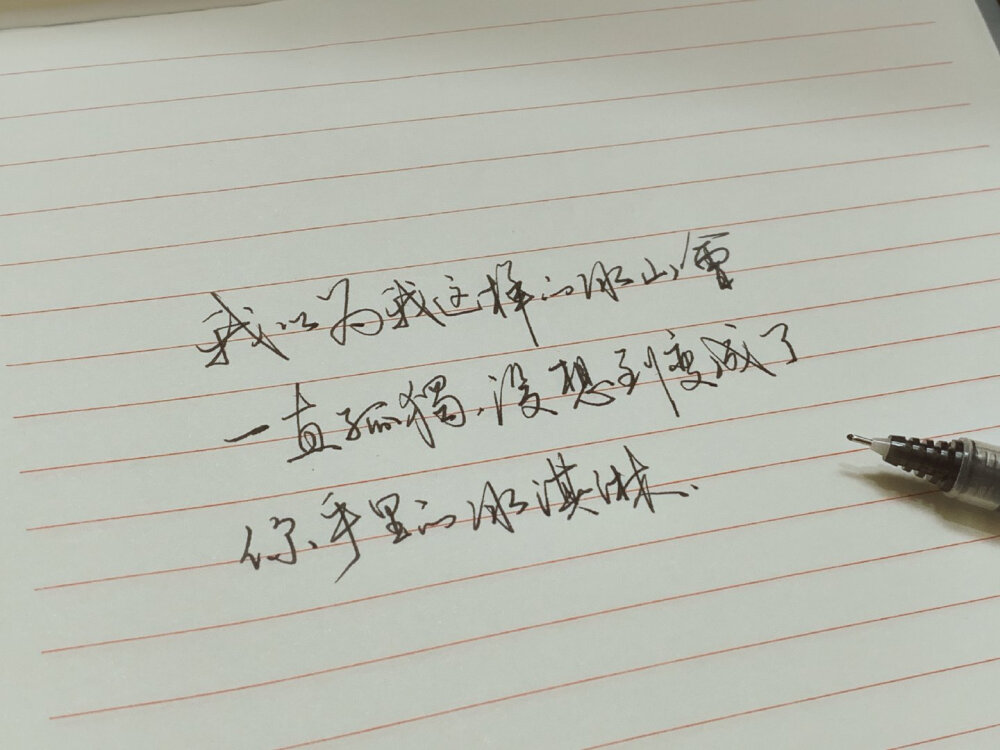 我以为我这样的冰山,會
一直孤獨.没想到变成了
你手里的冰淇淋.